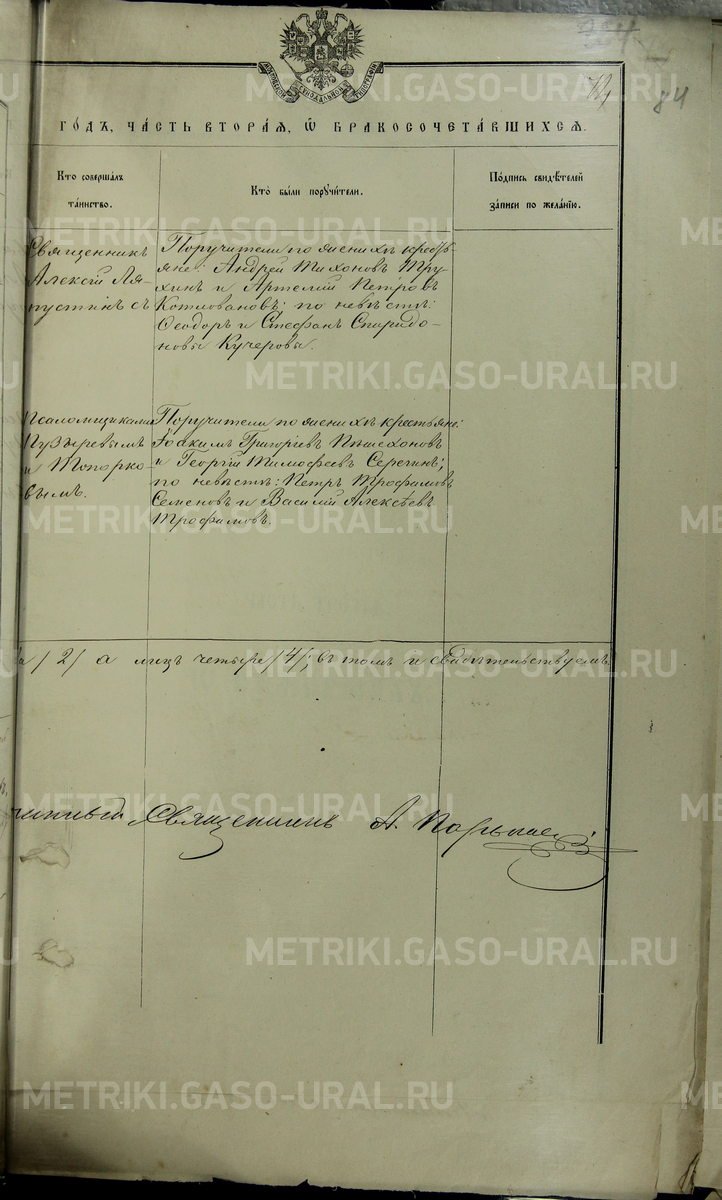 84
МОСКОВСКОЙ СѴНОДАЛЬНОЙ ТИПОГРАФІИ
ГО́ДЪ, ЧА́СТЬ ВТОРА́Я, Ѿ БРАКОСОЧЕТА́ВШИХСЯ.
Кто совершалъ
та́инство.
Кто̀ бы́ли пору́чители.
По́дпись свидѣ́телей
за́писи по жела́нїю.
Священникъ
Алексій Ля-
пустинъ съ
Поручители по женихѣ кресть-
яне: Андрей Тихоновъ Тру-
хинъ и Артемій Петровъ
Котловановъ; по невѣстѣ:
Ѳеодоръ и Стефанъ Спиридо-
новы Кучеровы.
псаломщиками
Пузыревымъ
и Топорко-
вымъ.
Поручители по женихѣ крестьяне:
Іоакимъ Григоріевъ Пѣшехоновъ
и Георгій Тимофеевъ Серегинъ;
по невѣстѣ: Петръ Трофимовъ
Семеновъ и Василій Алексѣевъ
Трофимовъ.
/2/ а лицъ четыре /4/; въ томъ и свидѣтельствуемъ
чинный Священникъ А.
METRIKI.GASO-URAL.RU